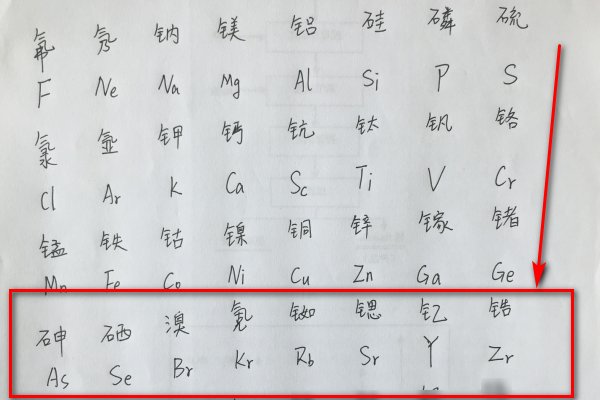 氟 氖 钠 镁 铝 硅 磷 硫
F Ne Na Mg Al Si P S
氯 氩 钾 钙 钪 钛 钒 铬
Cl Ar K Ca Sc Ti V Cr
锰 铁 钴 镍 铜 锌 镓 锗
Mn Fe Co Ni Cu Zn Ga Ge
砷 硒 溴 氪 铷 锶 钇 锆
As Se Br Kr Rb Sr Y Zr